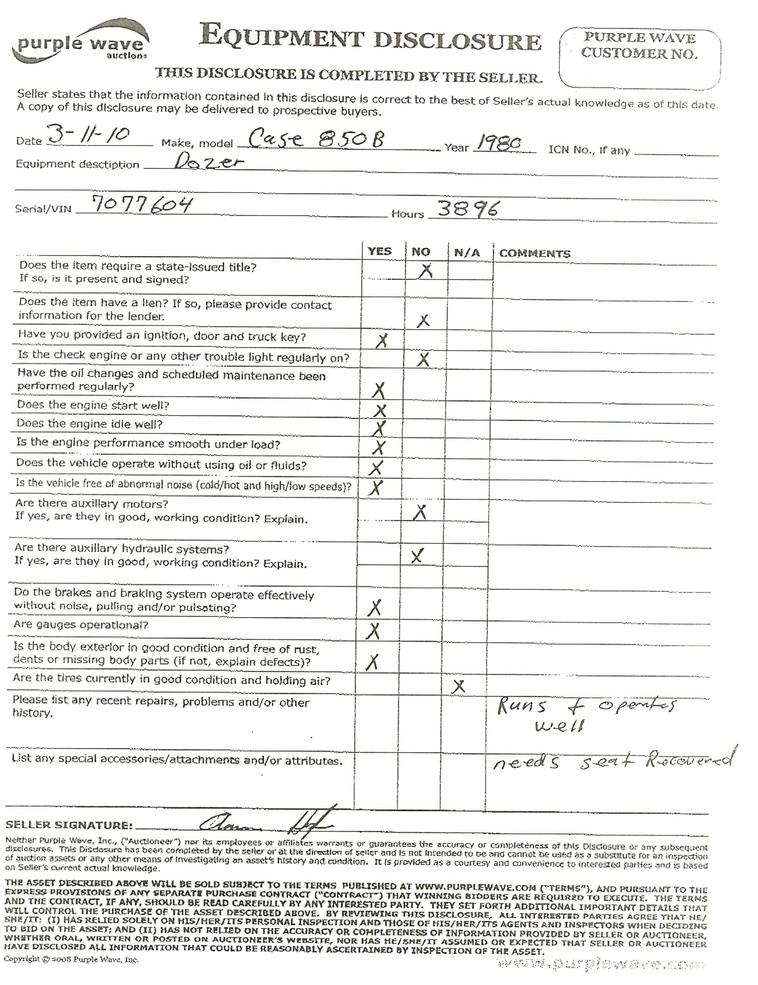 purple wave
auctions
EQUIPMENT DISCLOSURE
PURPLE WAVE
CUSTOMER NO.
THIS DISCLOSURE IS COMPLETED BY THE SELLER.
Seller states that the information contained in this disclosure is correct to the best of Seller's actual knowledge as of this date.
A copy of this disclosure may be delivered to prospective buyers.
Date 3-11-10 Make, model Case 850B Year 1980 ICN No., if any
Equipment desctiption Dozer
Serial/VIN 7077604 Hours 3896
YES NO N/A COMMENTS
Does the item require a state-issued title? X
If so, is it present and signed?
Does the item have a lien? If so, please provide contact
information for the lender. X
Have you provided an ignition, door and truck key? X
Is the check engine or any other trouble light regularly on? X
Have the oil changes and scheduled maintenance been
performed regularly? X
Does the engine start well? X
Does the engine idle well? X
Is the engine performance smooth under load? X
Does the vehicle operate without using oil or fluids? X
Is the vehicle free of abnormal noise (cold/hot and high/low speeds)? X
Are there auxillary motors? X
If yes, are they in good, working condition? Explain.
Are there auxillary hydraulic systems? X
If yes, are they in good, working condition? Explain.
Do the brakes and braking system operate effectively
without noise, pulling and/or pulsating? X
Are gauges operational? X
Is the body exterior in good condition and free of rust,
dents or missing body parts (if not, explain defects)? X
Are the tires currently in good condition and holding air? X
Please list any recent repairs, problems and/or other Runs + operates
history. well
List any special accessories/attachments and/or attributes. needs seat Recovered
SELLER SIGNATURE:
Neither Purple Wave, Inc., ("Auctioneer") nor its employees or affiliates warrants or guarantees the accuracy or completeness of this Disclosure or any subsequent
disclosures. This Disclosure has been completed by the seller or at the direction of seller and is not intended to be and cannot be used as a substitute for an inspection
of auction assets or any other means of investigating an asset's history and condition. It is provided as a courtesy and convenience to interested parties and is based
on Seller's current actual knowledge.
THE ASSET DESCRIBED ABOVE WILL BE SOLD SUBJECT TO THE TERMS PUBLISHED AT WWW.PURPLEWAVE.COM ("TERMS"), AND PURSUANT TO THE
EXPRESS PROVISIONS OF ANY SEPARATE PURCHASE CONTRACT ("CONTRACT") THAT WINNING BIDDERS ARE REQUIRED TO EXECUTE. THE TERMS
AND THE CONTRACT, IF ANY, SHOULD BE READ CAREFULLY BY ANY INTERESTED PARTY. THEY SET FORTH ADDITIONAL IMPORTANT DETAILS THAT
WILL CONTROL THE PURCHASE OF THE ASSET DESCRIBED ABOVE. BY REVIEWING THIS DISCLOSURE, ALL INTERESTED PARTIES AGREE THAT HE/
SHE/IT: (I) HAS RELIED SOLELY ON HIS/HER/ITS PERSONAL INSPECTION AND THOSE OF HIS/HER/ITS AGENTS AND INSPECTORS WHEN DECIDING
TO BID ON THE ASSET; AND (II) HAS NOT RELIED ON THE ACCURACY OR COMPLETENESS OF INFORMATION PROVIDED BY SELLER OR AUCTIONEER,
WHETHER ORAL, WRITTEN OR POSTED ON AUCTIONEER'S WEBSITE, NOR HAS HE/SHE/IT ASSUMED OR EXPECTED THAT SELLER OR AUCTIONEER
HAVE DISCLOSED ALL INFORMATION THAT COULD BE REASONABLY ASCERTAINED BY INSPECTION OF THE ASSET.
Copyright © 2008 Purple Wave, Inc.
www.purplewave.com